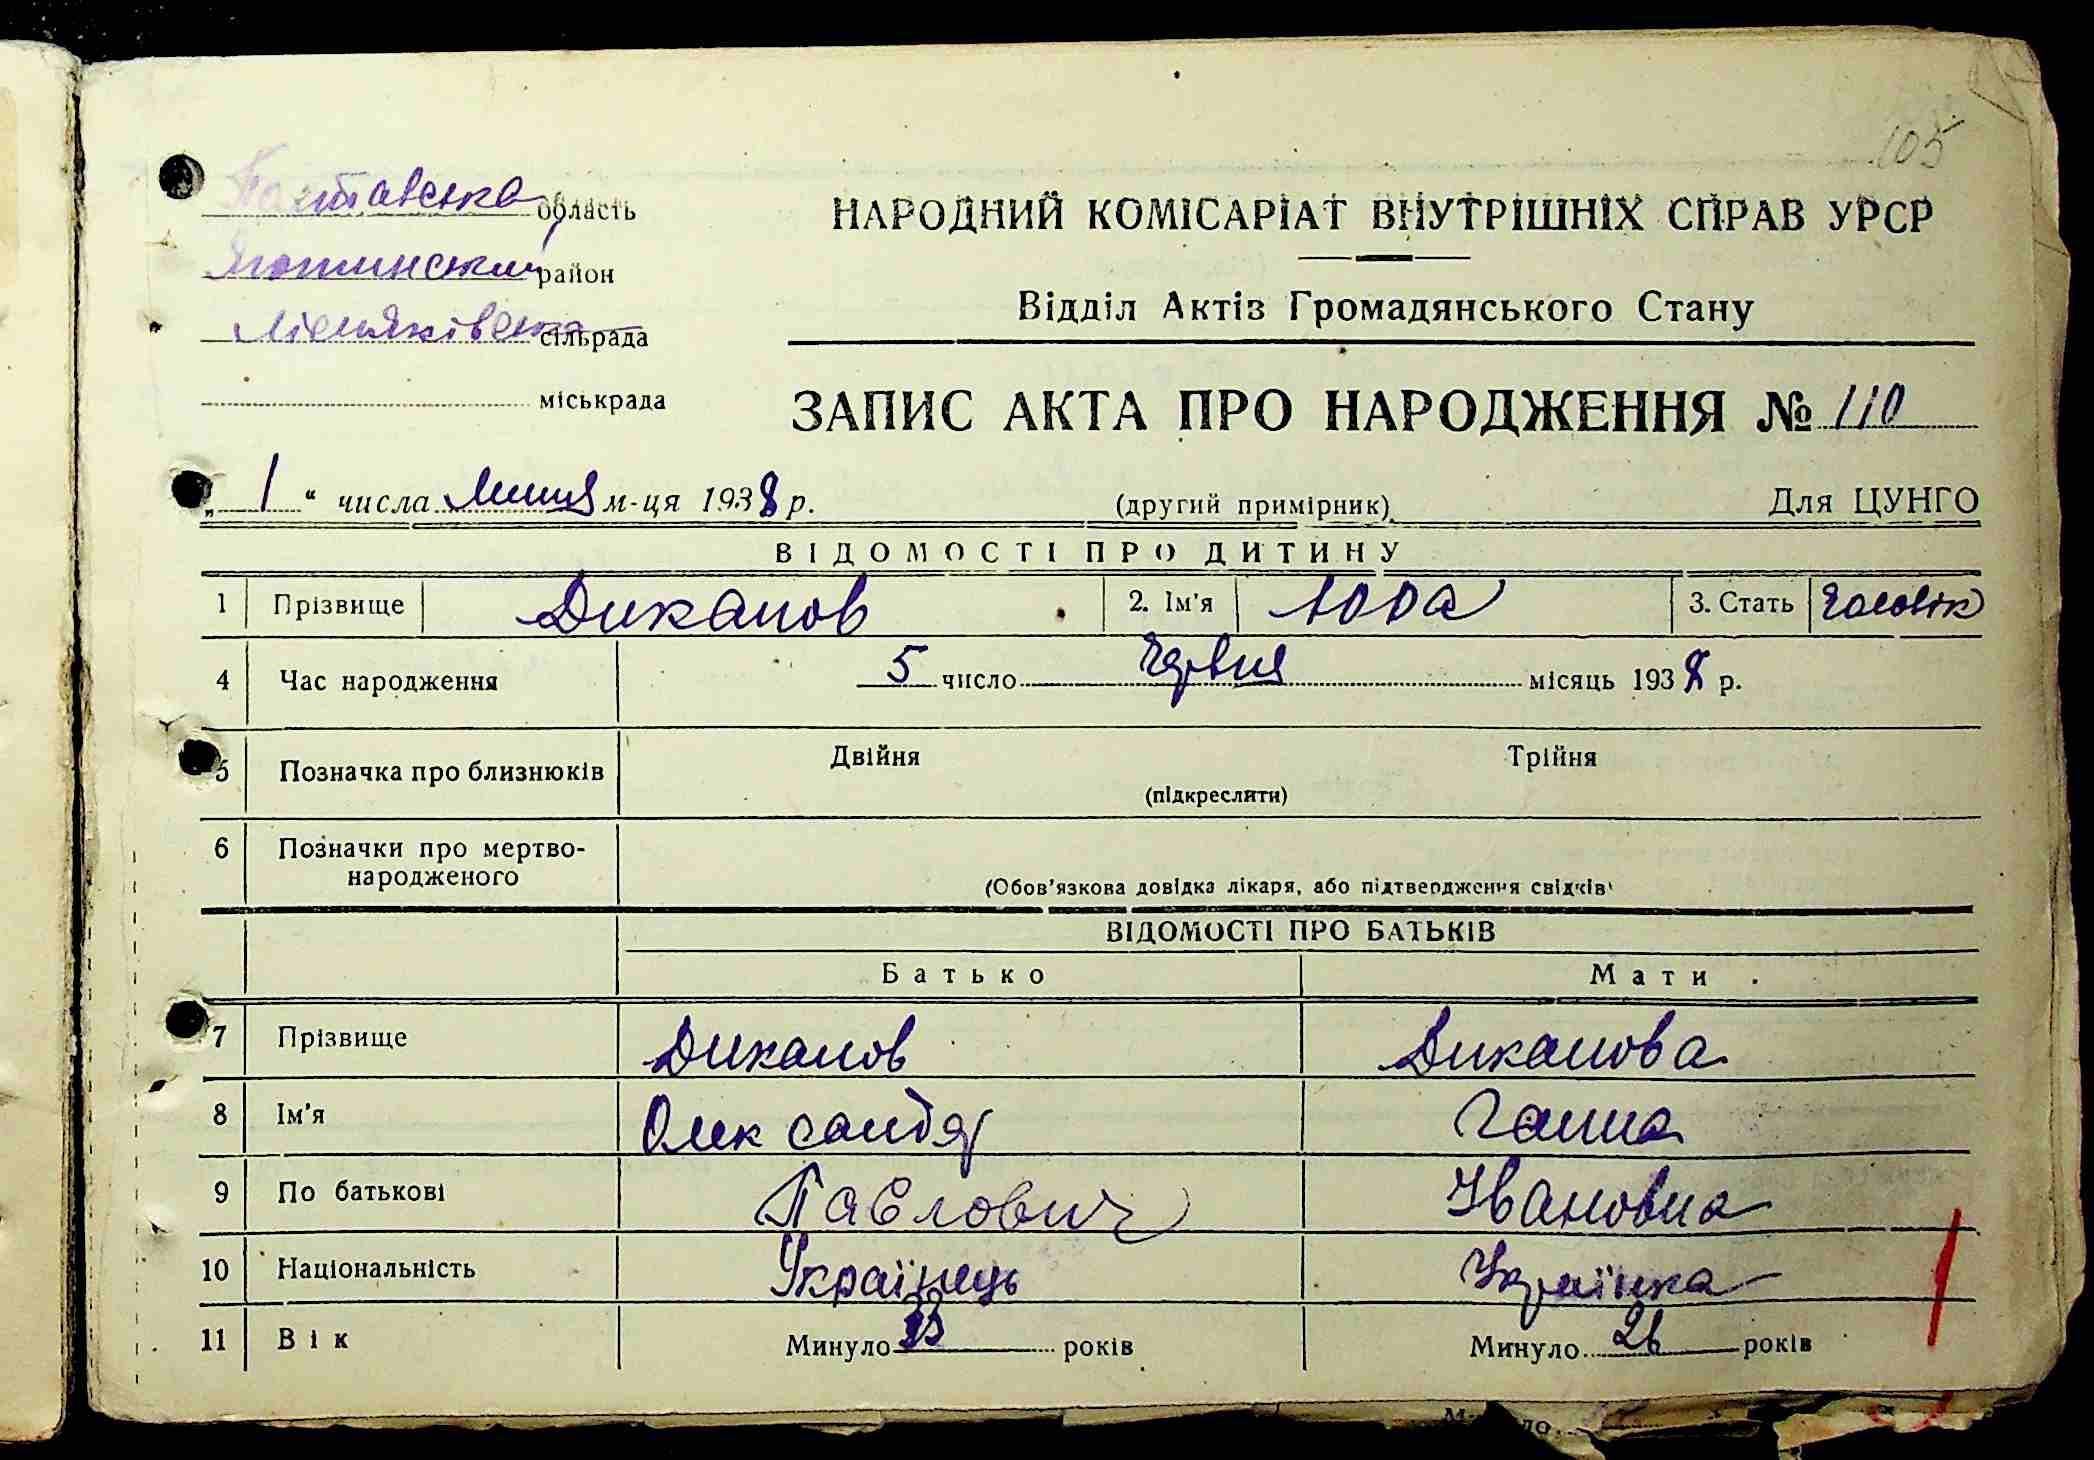 105
Полтавська область
Яготинський район
Лісняківська сільрада
міськрада
НАРОДНИЙ КОМІСАРІАТ ВНУТРІШНІХ СПРАВ УРСР
Відділ Актів Громадянського Стану
ЗАПИС АКТА ПРО НАРОДЖЕННЯ № 110
„ 1 “ числа липня м-ця 1938 р. (другий примірник) Для ЦУНГО
ВІДОМОСТІ ПРО ДИТИНУ
1 Прізвище Диканов 2. Ім'я 3. Стать чоловік
4 Час народження 5 число червня місяць 1938 р.
5 Позначка про близнюків Двійня Трійня
(підкреслити)
6 Позначки про мертво-
народженого
(Обов'язкова довідка лікаря, або підтвердження свідків)
ВІДОМОСТІ ПРО БАТЬКІВ
Батько Мати
7 Прізвище Диканов Диканова
8 Ім'я Олександр Ганна
9 По батькові Павлович Івановна
10 Національність Українець Українка
11 Вік Минуло 33 років Минуло 26 років